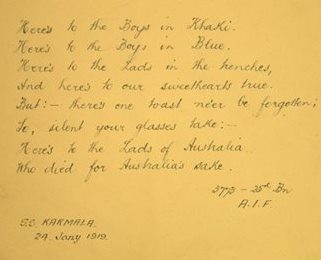 Here's to the Boys in Khaki.
Here's to the Boys in Blue.
Here's to the Lads in the trenches,
And here's to our sweethearts true.
But:- there's one toast ne'er be forgotten;
So, silent your glasses take:-
Here's to the Lads of Australia
Who died for Australia's sake.
25th Bn
A.I.F.
S.S. KARMALA.
24. Jany 1919.